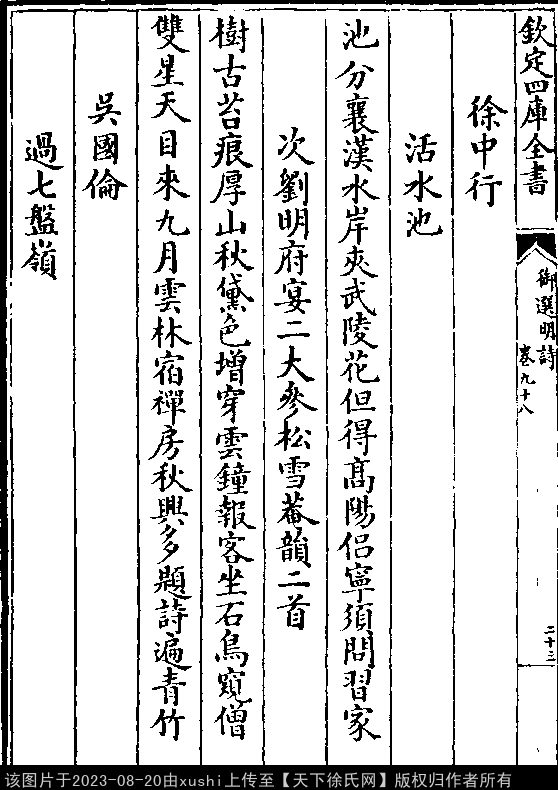 欽定四庫全書
御選明詩
卷九十八
二十三
徐中行
活水池
池分襄漢水岸夾武陵花但得髙陽侣寧須問習家
次劉明府宴二大叅松雪菴韻二首
樹古苔痕厚山秋黛色增穿雲鐘報客坐石鳥窺僧
雙星天目來九月雲林宿禪房秋興多題詩遍青竹
吳國倫
過七盤嶺
该图片于2023-08-20由xushi上传至【天下徐氏网】版权归作者所有